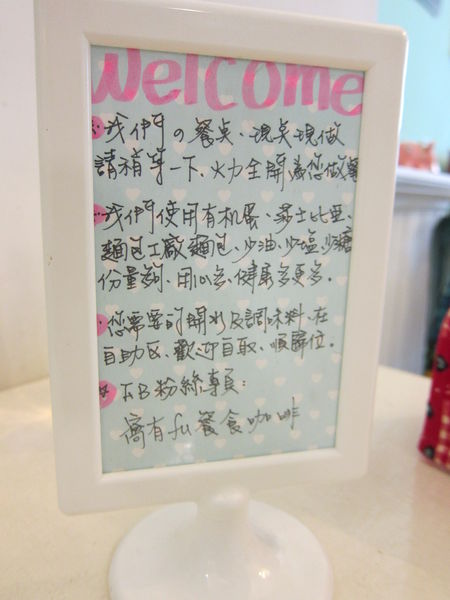 Welcome
我們の餐桌、現點現做
請稍等一下、火力全開為您做餐
我們使用有机蛋、莎士比亞
麵包工廠麵包、少油、少塩、少糖
份量夠、用心多、健康多更多。
您需要的開水及調味料、在
自助区、歡迎自取、順歸位。
FB粉絲專頁:
窩有fu餐食咖啡